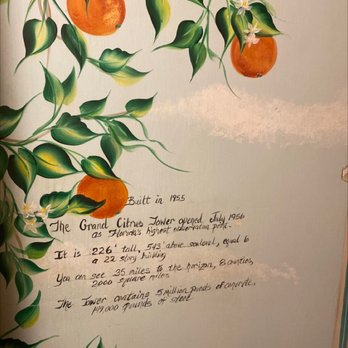 Built in 1955
The Grand Citrus Tower opened July 1956
as Florida's highest observation point.
It is 226' tall, 543' above sealevel, equal to
a 22 story building
You can see 35 miles to the horizon, 8 counties,
2000 square miles
The Tower contains 5 million pounds of concrete,
149,000 pounds of steel